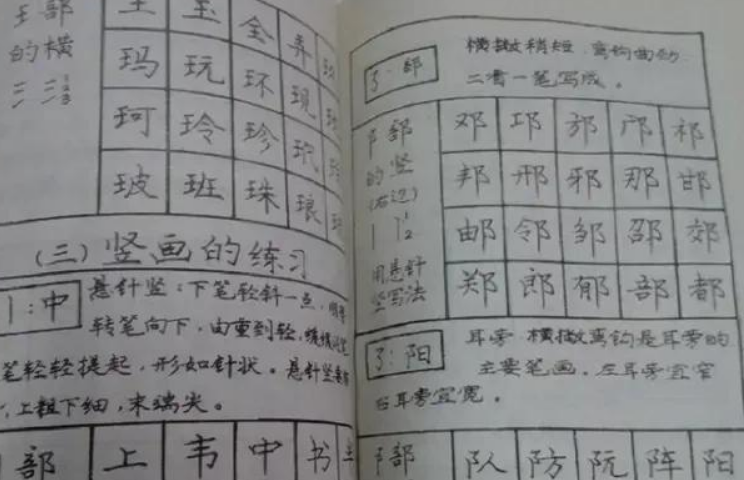 王部 王 玉 全 弄
的横 玛 玩 环 现
三 三 1 2 3
珂 玲 珍 珉
玻 班 珠 琅
(三)竖画的练习
丨:中 悬针竖:下笔轻斜一点,
转笔向下,由重到轻,
笔轻轻提起,形如针状。悬针竖
,上粗下细,末端尖。
部 上 韦 中 书
了:部 横撇稍短,弯钩曲动
二者一笔写成。
阝部 邓 邛 邡 邝 祁
的竖 邦 邢 邪 那 邯
(右边)
丨 阝 1 2 邮 邻 邹 邵 郊
用悬针
竖写法 郑 郎 郁 部 都
了:阳 耳旁 横撇弯钩是耳旁的
主要笔画,左耳旁宜窄
右耳旁宜宽。
阝部 队 防 阮 阵 阳